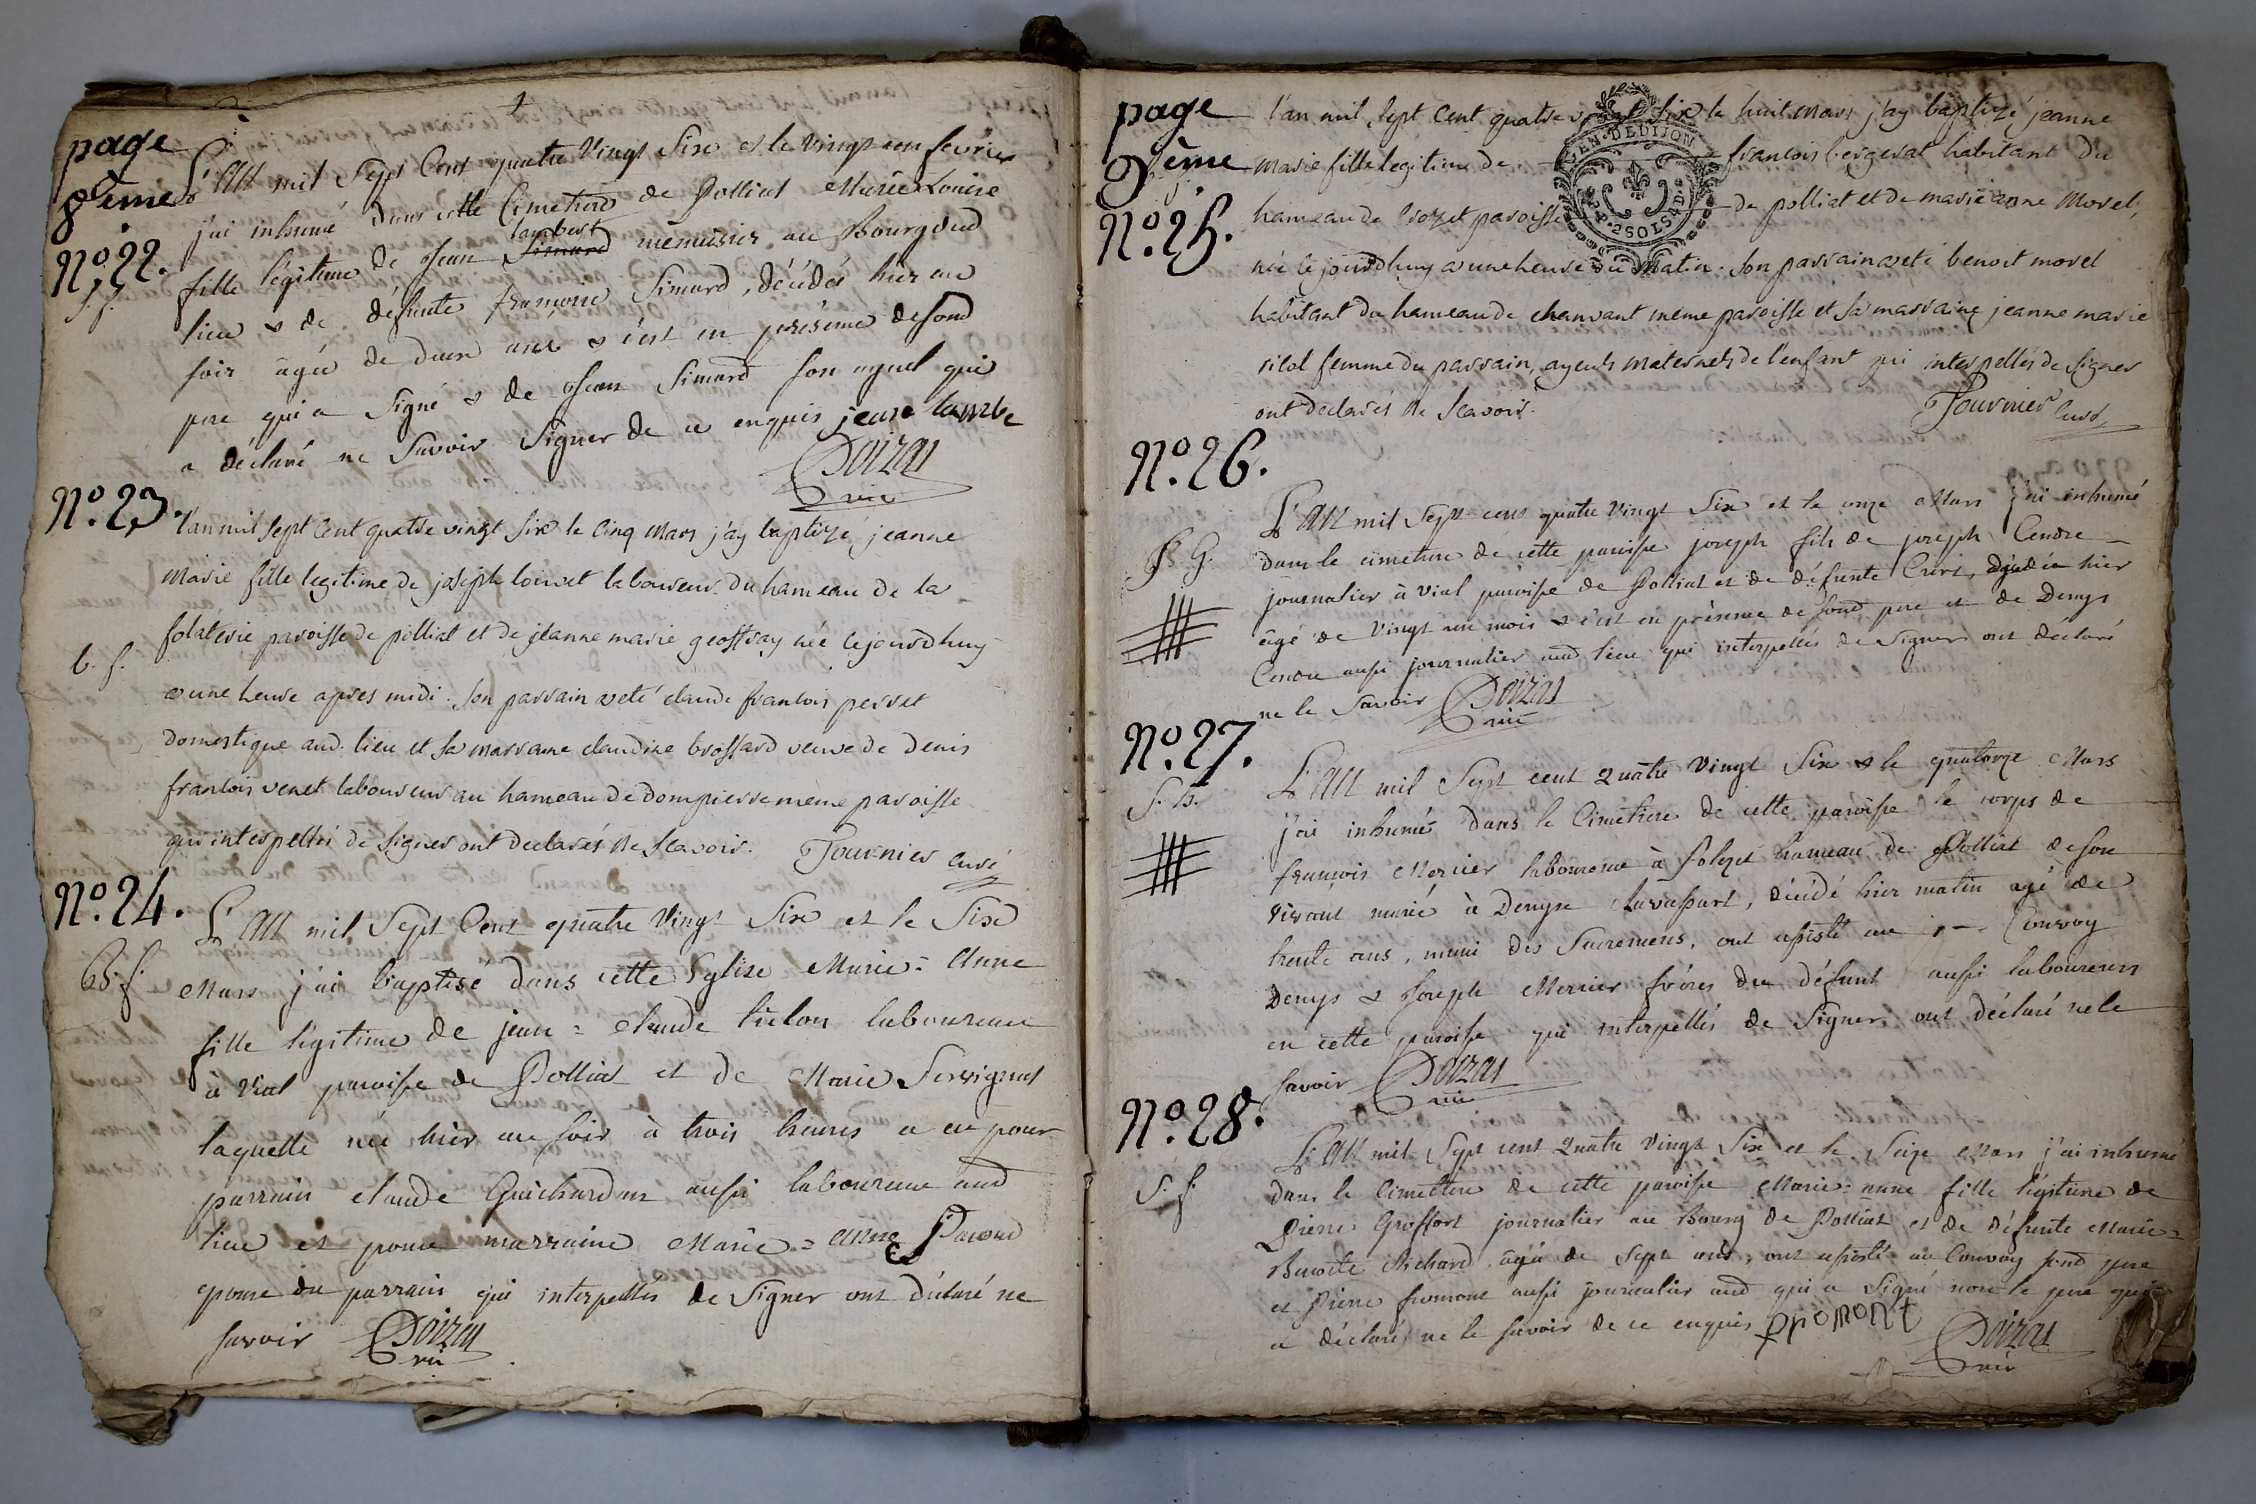 page
8ème
N.º 22.
s. f.
L'an mil Sept Cent quatre Vingt Six et le vingt un fevrier
j'ai inhumé dans cette Cimetiere de Polliat Marie Louise
lambert
fille legitime de Jean Simard menuisier au Bourg dud
lieu & de défunte françoise Simard, décédée hier au
soir âgée de deux ans & c'est en présence de son d
pere qui a Signé & de Jean Simard son ayeul qui
a déclaré ne Savoir Signer de ce enquis jean lambe
Doizas
vic
N.º 23.
b. f.
l'an mil sept cent quatre vingt six le cinq mars j'ay baptizé jeanne
marie fille legitime de joseph loiret laboureur du hameau de la
folaterie paroisse de polliat et de jeanne marie geoffray née cejourdhuy
a une heure apres midi. son parrain a eté claude francois perret
domestique aud. lieu et sa marraine claudine brossard veuve de denis
francois venet laboureur au hameau de dompierre meme paroisse
qui interpellés de signer ont declarés ne scavoir. Tournier curé
N.º 24.
B. f.
L'an mil Sept Cent quatre Vingt Six et le Six
Mars j'ai baptisé dans cette Eglise Marie = Anne
fille légitime de jean = claude tillon laboureur
à Vial paroisse de Polliat et de Marie Servignat
laquelle née hier au soir à trois heures a eu pour
parrain claude Guichardon aussi laboureur aud
lieu et pour marraine Marie = Anne Pacoud
epouse du parrain qui interpellés de Signer ont déclaré ne
savoir Doizas
vic
page
9ème
N.º 25.
l'an mil sept cent quatre vingt six le huit mars j'ay baptizé jeanne
marie fille legitime de francois bergerat habitant du
hameau de paroisse de polliat et de marie anne Morel,
GEN. DE DIJON
2 SOLS 4 D
née le jourdhuy a une heure du matin. son parrain a eté benoit morel
habitant du hameau de chanvant meme paroisse et sa marraine jeanne marie
femme du parrain, ayeuls maternels de l'enfant qui interpellés de signer
ont declarés ne scavoir. Tournier curé
N.º 26.
S. G.
L'an mil Sept cent quatre Vingt Six et le onze Mars j'ai inhumé
dans le cimetiere de cette paroisse joseph fils de joseph Cendre
journalier à Vial paroisse de Polliat et de défunte Crist, décédée hier
âgé de Vingt un mois & c'est en présence de son d. pere et de Denys
Cendre aussi journalier aud lieu qui interpellés de Signer ont déclaré
ne le Savoir Doizas
vic
N.º 27.
S. h.
L'an mil Sept cent Quatre Vingt Six & le quatorze Mars
j'ai inhumé dans le Cimetiere de cette paroisse le corps de
françois Mercier laboureur à Solezet hameau de Polliat de son
vivant marié à Denyse Chavassart, décédé hier matin agé de
trente ans, muni des Sacremens, ont assisté au Convoy
Denys & Joseph Mercier frères du défunt aussi laboureurs
en cette paroisse qui interpellés de Signer ont déclaré ne le
savoir Doizas
vic
N.º 28.
S. f.
L'an mil Sept cent Quatre Vingt Six et le Seize Mars j'ai inhumé
dans le Cimetiere de cette paroisse Marie = anne fille légitime de
Pierre Groffort journalier au Bourg de Polliat et de défunte Marie =
Benoite Richard âgée de Sept ans, ont assisté au Convoy son d pere
et Pierre fromont aussi journalier aud qui a Signé non le pere qui
a déclaré ne le savoir de ce enquis promont Doizas
vic